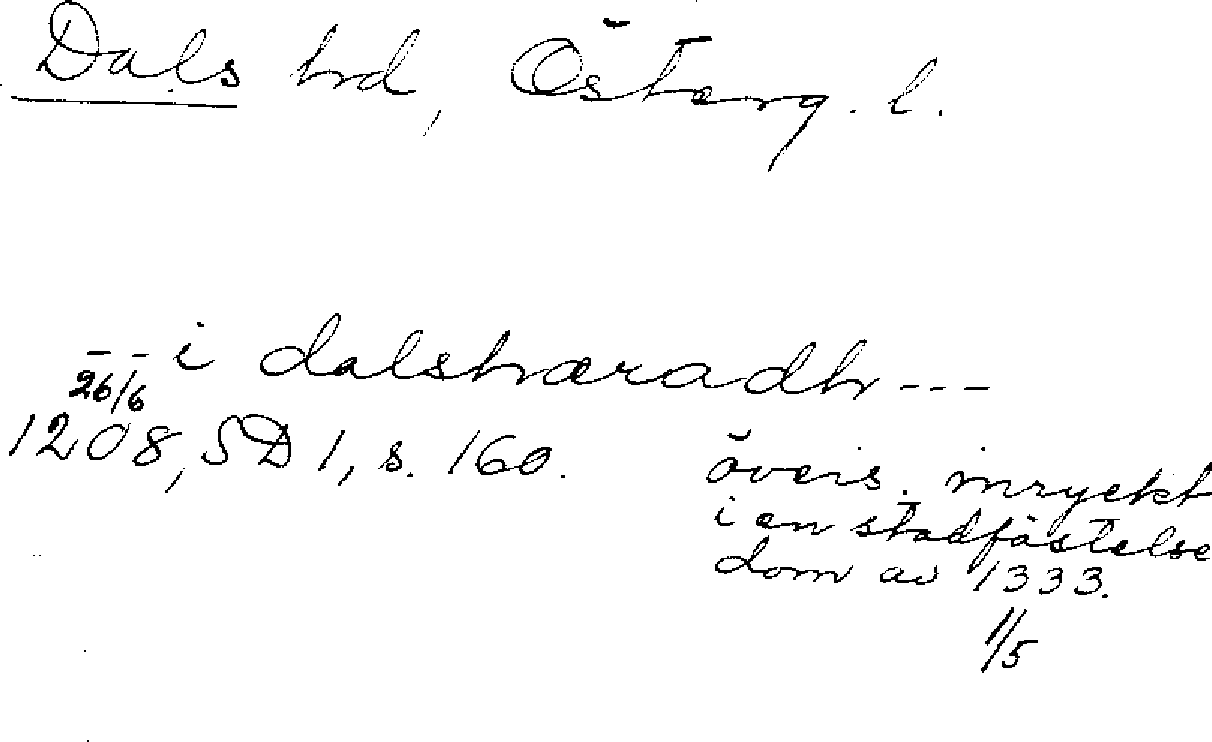 Dals hd, Österg. l.
-- i dalshæradh ---
26/6
1208, SD 1, s. 160.
övers. inryckt
i en stadfästelse
dom av 1333.
11/5